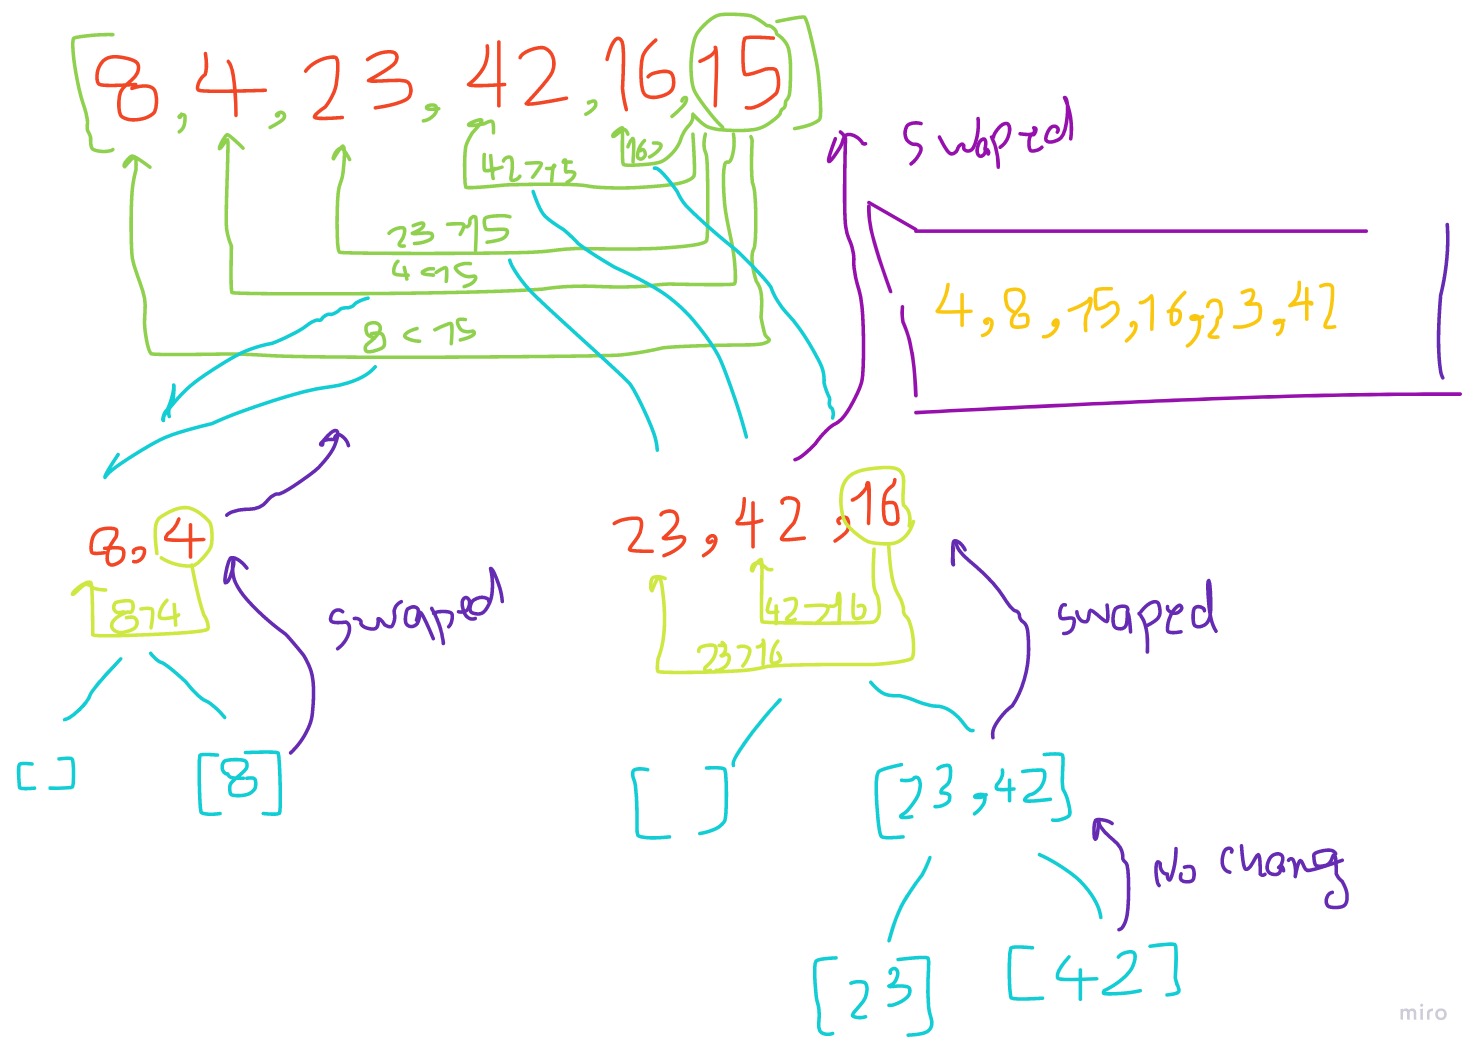 [8, 4, 23, 42, 16, 15]
16>
42>15
23>15
4<15
8<15
swaped
4, 8, 15, 16, 23, 42
8, 4
8>4
swaped
[ ]
[8]
23, 42, 16
42>16
23>16
swaped
[ ]
[23, 42]
No chang
[23]
[42]
miro